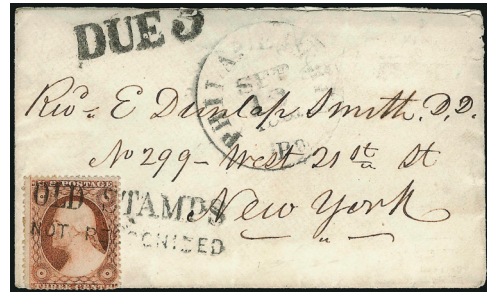 DUE 3
PHILADELPHIA
SEP
Revd. E Dunlap Smith, D.D.
No 299 - West 21st St
New York
OLD STAMPS
NOT RECOGNIZED
POSTAGE
THREE CENTS